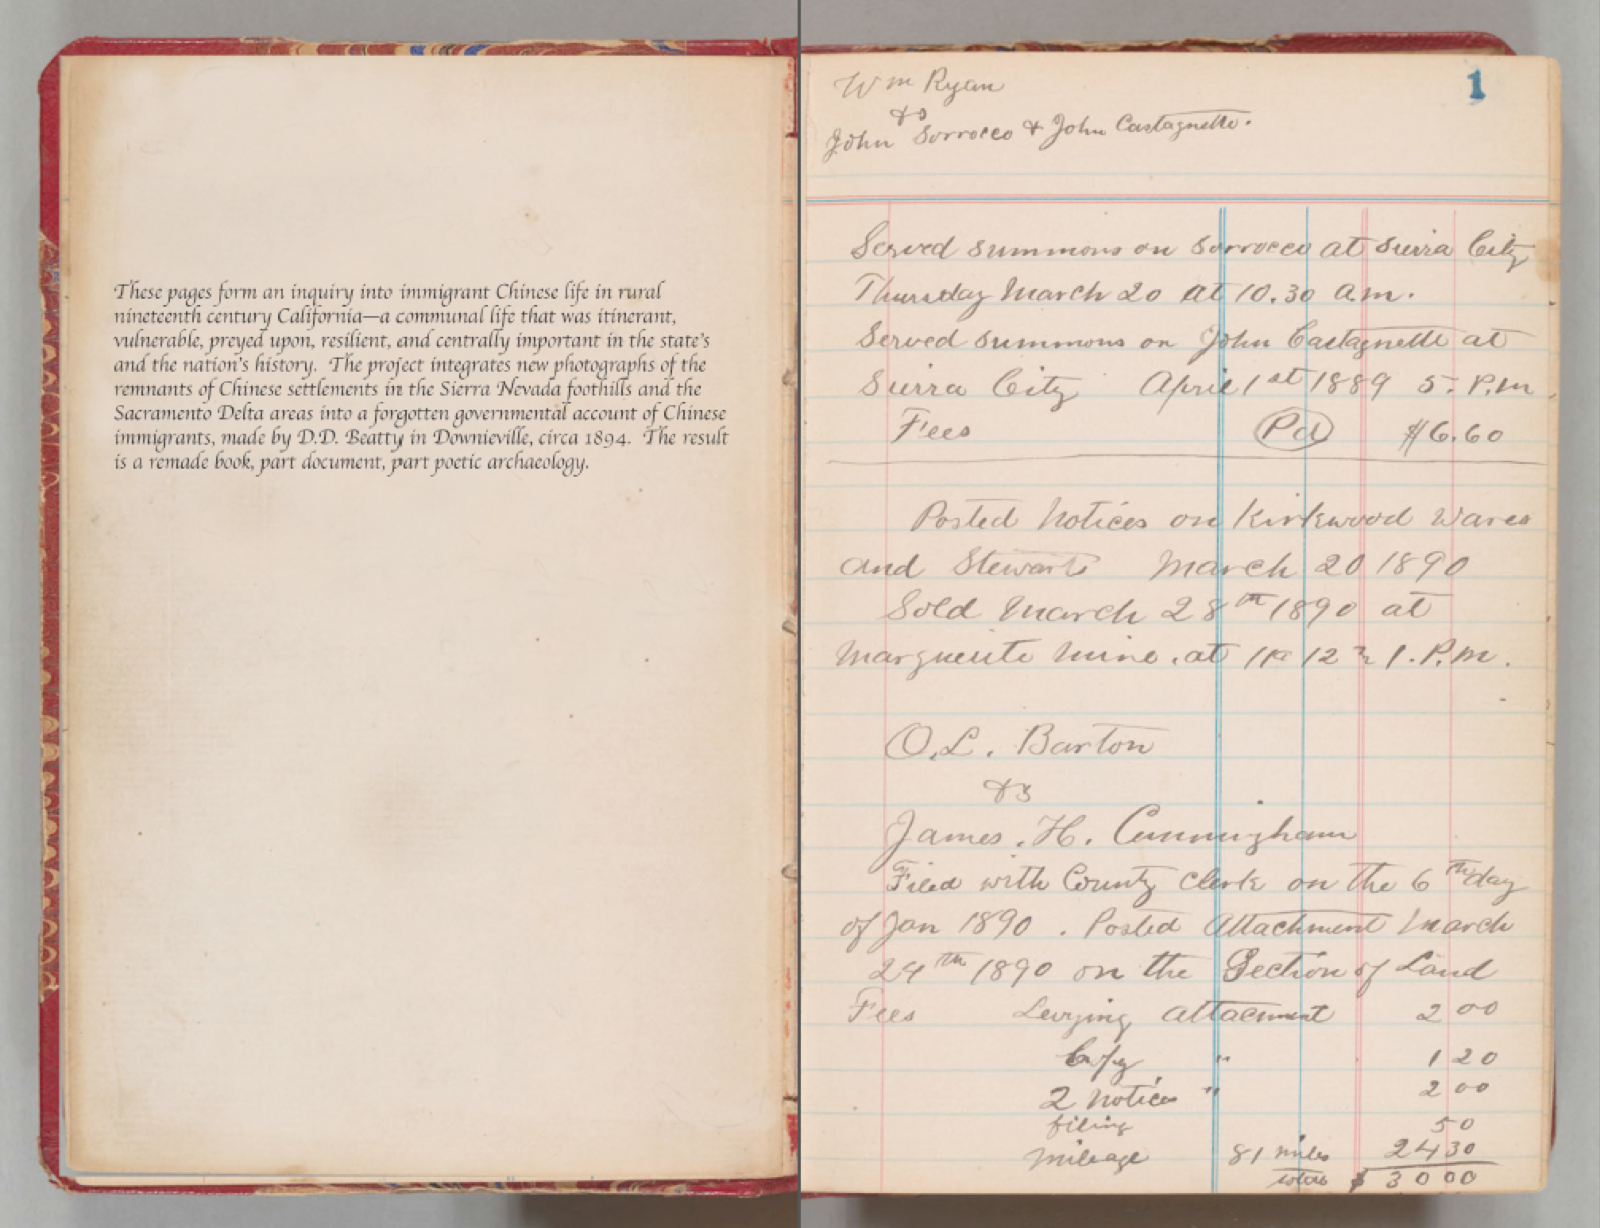 These pages form an inquiry into immigrant Chinese life in rural
nineteenth century California—a communal life that was itinerant,
vulnerable, preyed upon, resilient, and centrally important in the state's
and the nation's history. The project integrates new photographs of the
remnants of Chinese settlements in the Sierra Nevada foothills and the
Sacramento Delta areas into a forgotten governmental account of Chinese
immigrants, made by D.D. Beatty in Downieville, circa 1894. The result
is a remade book, part document, part poetic archaeology.
1
Wm Ryan
vs
John Sorrocco & John Castagnetto.
Served summons on Sorrocco at Sierra City
Thursday March 20 at 10.30 a.m.
Served summons on John Castagnetto at
Sierra City April 1st 1889 5- P.m
Fees Pd $6.60
Posted Notices on Kirkwood Wares
and Stewarts March 20 1890
Sold March 28th 1890 at
Marguerite Mine. at 12 1. P.m.
O.L. Barton
vs
James. H. Cunningham
Filed with County Clerk on the 6th day
of Jan 1890. Posted Attachment March
24th 1890 on the Section of Land
Fees Levying attacment 2 00
Copy " 1 20
2 Notices " 2 00
filing 50
mileage 81 miles 24 30
$ 30 00